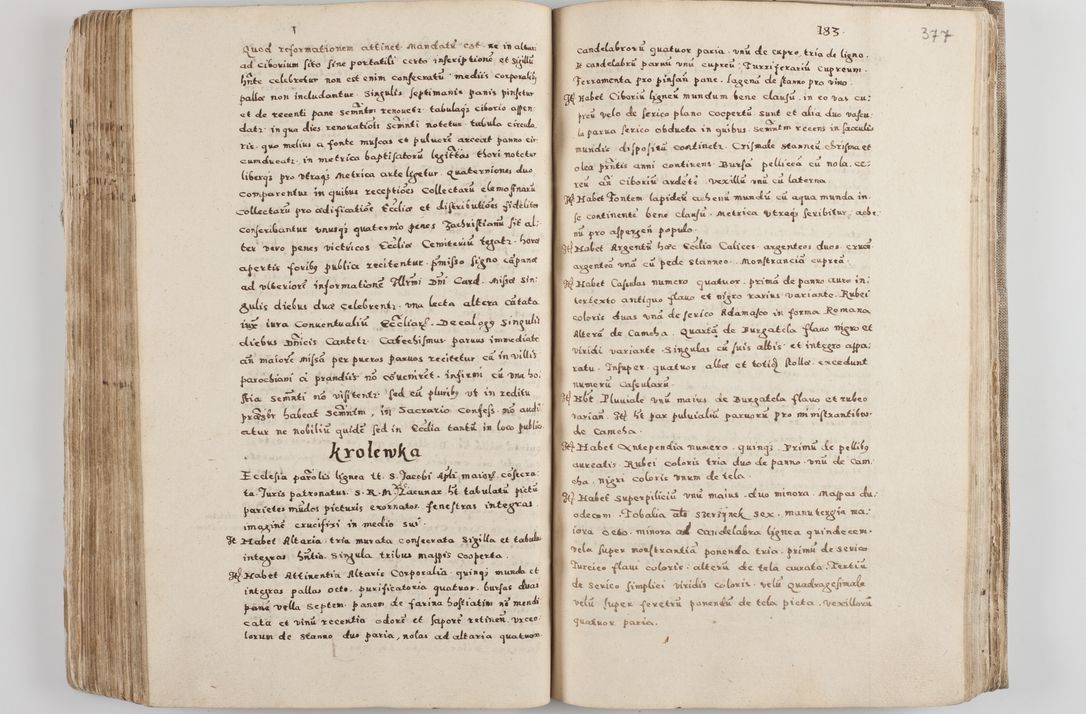 Quod reformationem attinet Mandatū est. ne in altari
ad Ciborium sito sine portatili certa inscriptione et Sigillū
hñte celebretur non est enim consecratū. mediis Corporalibꝫ
pallae non includantur. Singulis septimanis panis pinsetur
et de recenti pane Semñtm renovetr tabulaqꝫ ciborio appen
datr in qua dies renovatiois Semñti notetur tabula circula
ris. quo melius a fonte muscas et pulvere arceat panno cir
cumducatr. in metrica baptisatorū legittias thori notetur
liberqꝫ pro utraqꝫ Metrica arte ligetur. Quaterniones duo
Comparentur in quibus receptiões Collectarū elemosinarū
Collectarū pro aedificatiõe Ecclīae et distributiões fideliter
conscribantur unusqꝫ quaternio penes Zachristianū sit al
ter vero penes victricos Ecclīae Cemiteriū tegatr. horae
apertis foribꝫ publicae recitentur. p̄misso signo cāpanae
ad ulteriore informatione Illrmi Dñi Card. Missae Sin
gulis diebus duae celebrentr. una lecta altera cātata
iux̄ iura Conventualiū Ecclīarꝫ. Decalogo Singulis
diebus Dñicis Cantetr. Catechismus parvus immediate
añ maiore Missā per pueros parvos recitetur cū in villis
parochiani a prandiis nõ cōvenirēt. infirmi cū una ho
stia Semñti nõ visitentr sed cū pluribꝫ ut in reditu
praesbr habeat Semñtm, in Sacrario Confess. nõ audi
atur ne nobiliū quidē sed in Ecclīa tantū in loco publico
Krolewka
Ecclesia parōlis lignea tt. S. Jacobi Apli maioris cōsecra
ta. Juris patronatus. S. R. M. Lacunar ht tabulatū pictū
parietes mūdos picturis exornatos. fenestras integras
imagine crucifixi in medio sui.
It Habet Altaria tria murata consecrata Sigilla et tabulas
integras. hñtia. Singula tribus mappis cooperta.
It Habet Attinentia Altaris Corporalia quinqꝫ munda et
integras pallas octo. purificatoria quatuor. bursas duas
pane vella Septem. panem de farina hostiatim nõ mendi
cata et vinū recentia odore et sapore retinen. urceo
lorum de stanno duo paria, nolas ad altaria quatuor
183. 377
Candelabrorū quatuor paria. unū de cupro, tria de ligno.
It candelabrū parvū unū cupreū. Turriferariū Cupreum.
Ferromenta pro pinsañ pane. lagenā de stanno pro vino.
It Habet Ciboriū ligneū mundum bene clausū. in eo vas cu
preū velo de serico plano coopertū. sunt et alia duo vascu
la parva serico obducta in quibus. Semñtm recens in sacculis
mundis dispositū continetr. Crismale stanneū chrisma et
olea pn̄tis anni continens Bursā pelliceā cū nola. ce
reū añ Ciboriū ardēte vexillū unū cū laterna.
It Habet Fontem lapideū ahenū mundū cū aqua munda in
se continentē bene clausū. Metrica utraqꝫ scribitur. aabe
nū pro aspergen̄ populo.
It Habet Argentū haec Ecclīa Calices argenteos duos. crucē
argenteā unā cū pede stanneo. Monstranciā cupreā.
It Habet Casulas numero quatuor. primā de panno auro in
tertexto antiquo flavo et nigro rarius variante. Rubei
coloris duas unā de serico Adamasco in forma Romana
Alterā de Camcha. Quartā de Burgatela flavo nigro et
viridi variante. Singulas cū suis albis. et integro appa
ratu. Insuper quatuor albae et totidē stollae. excedunt
numerū Casularū.
It Hbt Pluviale unū maius de Burgatela flavo et rubeo
varian̄. It ht par pluvialiū parvorū pro ministrantibus
de Camcha.
It Habet Antependia numero. quinqꝫ. Primū de pellibꝫ
aureatis. Rubei coloris tria duo de panno. unū de Cam
cha, nigri coloris unum de tela.
It Habet Superpiliciū unū maius. duo minora. Mappas du
odecem. Tobalia als szerzynek sex. manutergia ma
iora octo. minora ad Candelabra lignea quindecem.
Vela super monstrantiā ponenda tria. primū de serico
Turcico flavi coloris. alterū de tela aurata. Tertiū
de serico simplici viridis coloris. Velū Quadragesimale
Velū super feretrū ponendū de tela picta. vexillorū
quatuor paria.